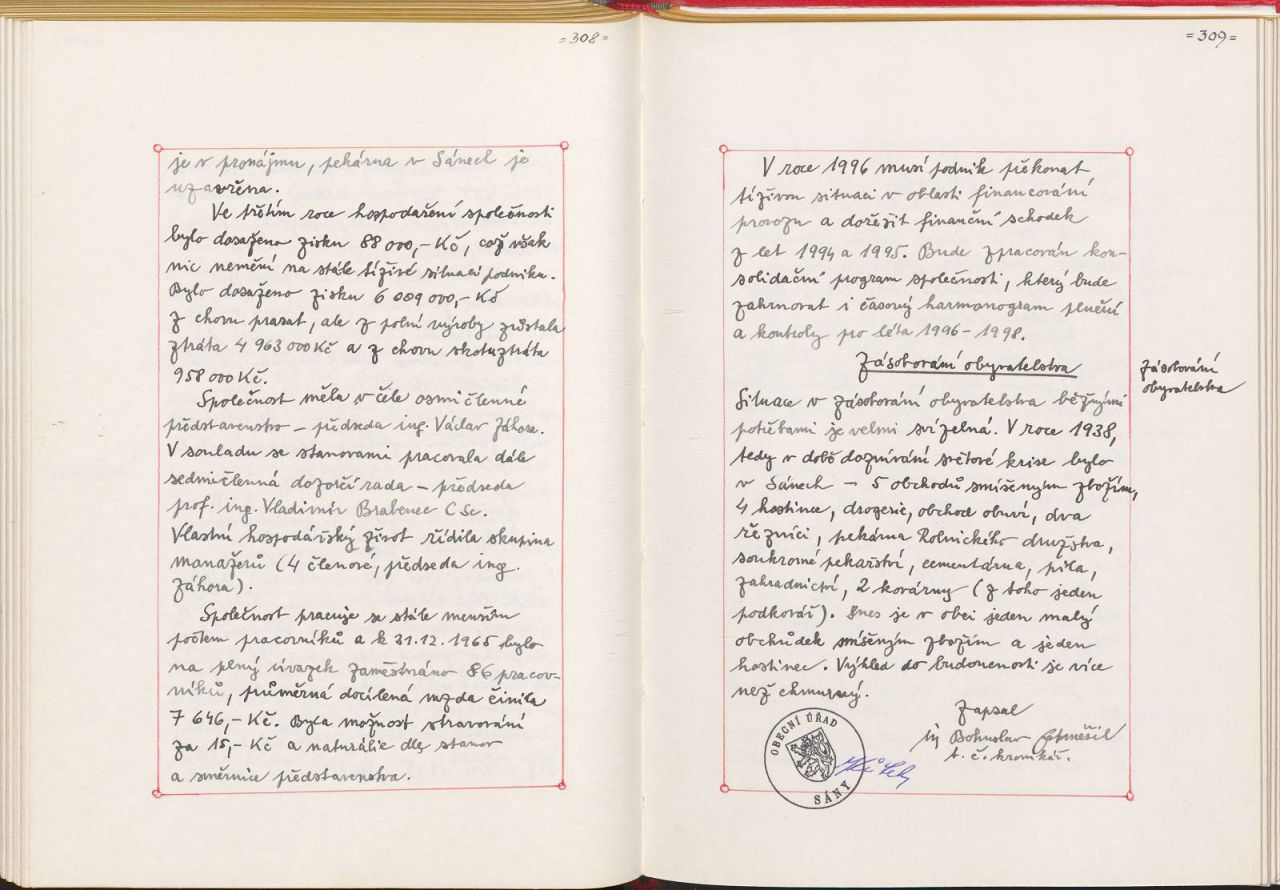 =308=
je v pronájmu, pekárna v Sánech je
uzavřena.
Ve třetím roce hospodaření společnosti
bylo dosaženo zisku 88 000,- Kč, což však
nic nemění na stále tíživé situaci podniku.
Bylo dosaženo zisku 6 009 000,- Kč
z chovu prasat, ale z polní výroby zůstala
ztráta 4 963 000 Kč a z chovu skotu ztráta
958 000 Kč.
Společnost měla v čele osmičlenné
představenstvo - předseda ing. Václav Záhora.
V souladu se stanovami pracovala dále
sedmičlenná dozorčí rada - předseda
prof. ing. Vladimír Brabenec CSc.
Vlastní hospodářský život řídila skupina
manažerů (4 členové, předseda ing.
Záhora).
Společnost pracuje se stále menším
počtem pracovníků a k 31.12. 1965 bylo
na plný úvazek zaměstnáno 86 pracov-
níků, průměrná docílená mzda činila
7 646,- Kč. Byla možnost stravování
za 15,- Kč a naturálie dle stanov
a směrnice představenstva.
=309=
V roce 1996 musí podnik překonat
tíživou situaci v oblasti financování
provozu a dořešit finanční schodek
z let 1994 a 1995. Bude zpracován kon-
solidační program společnosti, který bude
zahrnovat i časový harmonogram plnění
a kontroly pro léta 1996-1998.
Zásobování obyvatelstva
Zásobování
obyvatelstva
Situace v zásobování obyvatelstva běžnými
potřebami je velmi svízelná. V roce 1938,
tedy v době doznívání světové krise bylo
v Sánech - 5 obchodů smíšeným zbožím,
4 hostince, drogerie, obchod obuví, dva
řezníci, pekárna Rolnického družstva,
soukromé pekařství, cementárna, pila,
zahradnictví, 2 kovárny (z toho jeden
podkovář). Dnes je v obci jeden malý
obchůdek smíšeným zbožím a jeden
hostinec. Výhled do budoucnosti je více
než chmurný.
Zapsal
Bohuslav
t. č. kronikář.
OBECNÍ ÚŘAD
SÁNY